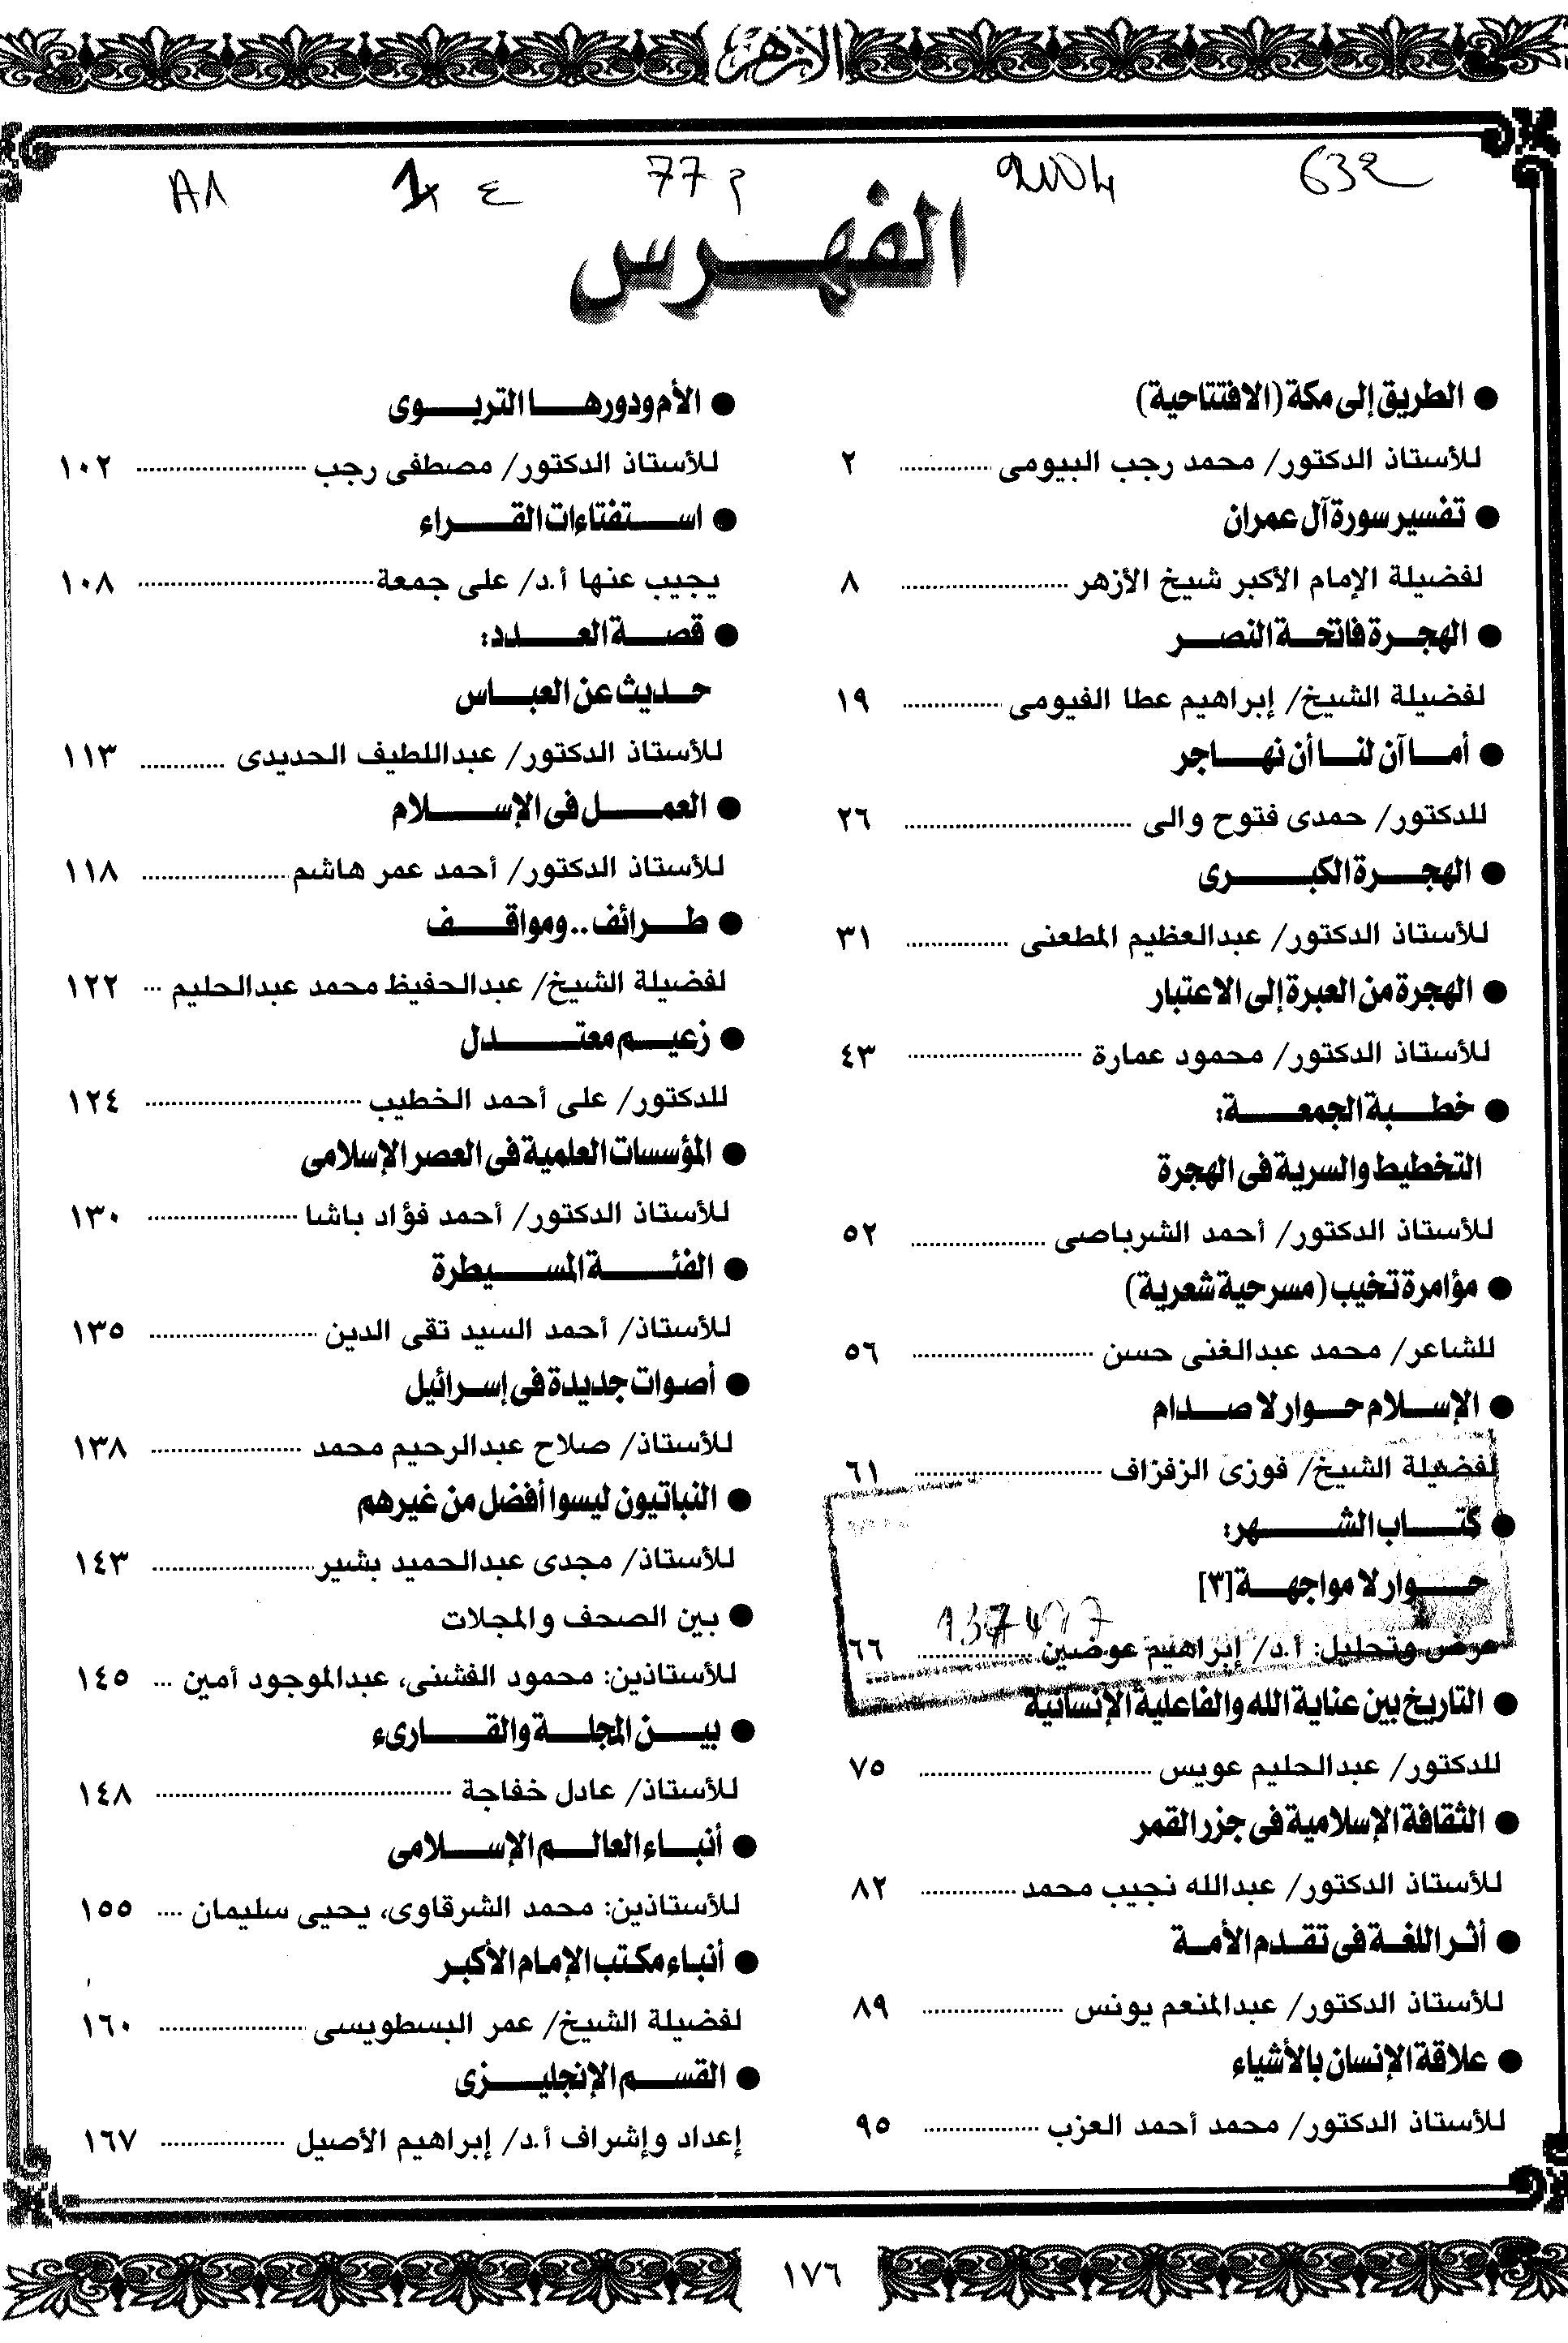 الأزهر
632
2004
77 م
ع 1
A1
الفهرس
● الطريق إلى مكة (الافتتاحية)
للأستاذ الدكتور/ محمد رجب البيومى ٢
● تفسير سورة آل عمران
لفضيلة الإمام الأكبر شيخ الأزهر ٨
● الهجرة فاتحة النصر
لفضيلة الشيخ/ إبراهيم عطا الفيومى ١٩
● أما آن لنا أن نهاجر
للدكتور/ حمدى فتوح والى ٢٦
● الهجرة الكبرى
للأستاذ الدكتور/ عبدالعظيم المطعنى ٣١
● الهجرة من العبرة إلى الاعتبار
للأستاذ الدكتور/ محمود عمارة ٤٣
● خطبة الجمعة:
التخطيط والسرية فى الهجرة
للأستاذ الدكتور/ أحمد الشرباصى ٥٢
● مؤامرة تخيب (مسرحية شعرية)
للشاعر/ محمد عبدالغنى حسن ٥٦
● الإسلام حوار لا صدام
لفضيلة الشيخ/ فوزى الزفزاف ٦١
● كتاب الشهر:
حوار لا مواجهة [٣]
عرض وتحليل: أ.د/ إبراهيم عوضين ٦٦
● التاريخ بين عناية الله والفاعلية الإنسانية
للدكتور/ عبدالحليم عويس ٧٥
● الثقافة الإسلامية فى جزر القمر
للأستاذ الدكتور/ عبدالله نجيب محمد ٨٢
● أثر اللغة فى تقدم الأمة
للأستاذ الدكتور/ عبدالمنعم يونس ٨٩
● علاقة الإنسان بالأشياء
للأستاذ الدكتور/ محمد أحمد العزب ٩٥
● الأم ودورها التربوى
للأستاذ الدكتور/ مصطفى رجب ١٠٢
● استفتاءات القراء
يجيب عنها أ.د/ على جمعة ١٠٨
● قصة العدد:
حديث عن العباس
للأستاذ الدكتور/ عبداللطيف الحديدى ١١٣
● العمل فى الإسلام
للأستاذ الدكتور/ أحمد عمر هاشم ١١٨
● طرائف.. ومواقف
لفضيلة الشيخ/ عبدالحفيظ محمد عبدالحليم ١٢٢
● زعيم معتدل
للدكتور/ على أحمد الخطيب ١٢٤
● المؤسسات العلمية فى العصر الإسلامى
للأستاذ الدكتور/ أحمد فؤاد باشا ١٣٠
● الفئة المسيطرة
للأستاذ/ أحمد السيد تقى الدين ١٣٥
● أصوات جديدة فى إسرائيل
للأستاذ/ صلاح عبدالرحيم محمد ١٣٨
● النباتيون ليسوا أفضل من غيرهم
للأستاذ/ مجدى عبدالحميد بشير ١٤٣
● بين الصحف والمجلات
للأستاذين: محمود الفشنى، عبدالموجود أمين ١٤٥
● بين المجلة والقارىء
للأستاذ/ عادل خفاجة ١٤٨
● أنباء العالم الإسلامى
للأستاذين: محمد الشرقاوى، يحيى سليمان ١٥٥
● أنباء مكتب الإمام الأكبر
لفضيلة الشيخ/ عمر البسطويسى ١٦٠
● القسم الإنجليزى
إعداد وإشراف أ.د/ إبراهيم الأصيل ١٦٧
١٧٦